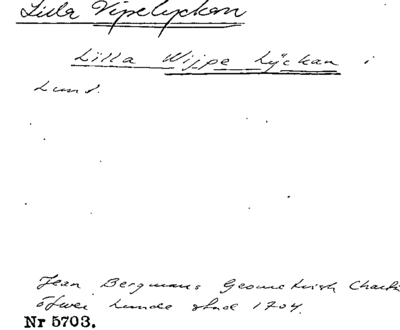 Lilla Vipelyckan
Lilla Wijpe Lÿckan i
Lund.
Jean Bergmans Geometrisk Charta
öfwer Lunde stad 1704.
Nr 5703.